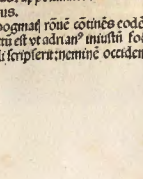 rus.
pogmat῀ rōnē cōtinēs eodē
tū est vt adrianꝰ iniustū fo
li scripserit: neminē occiden